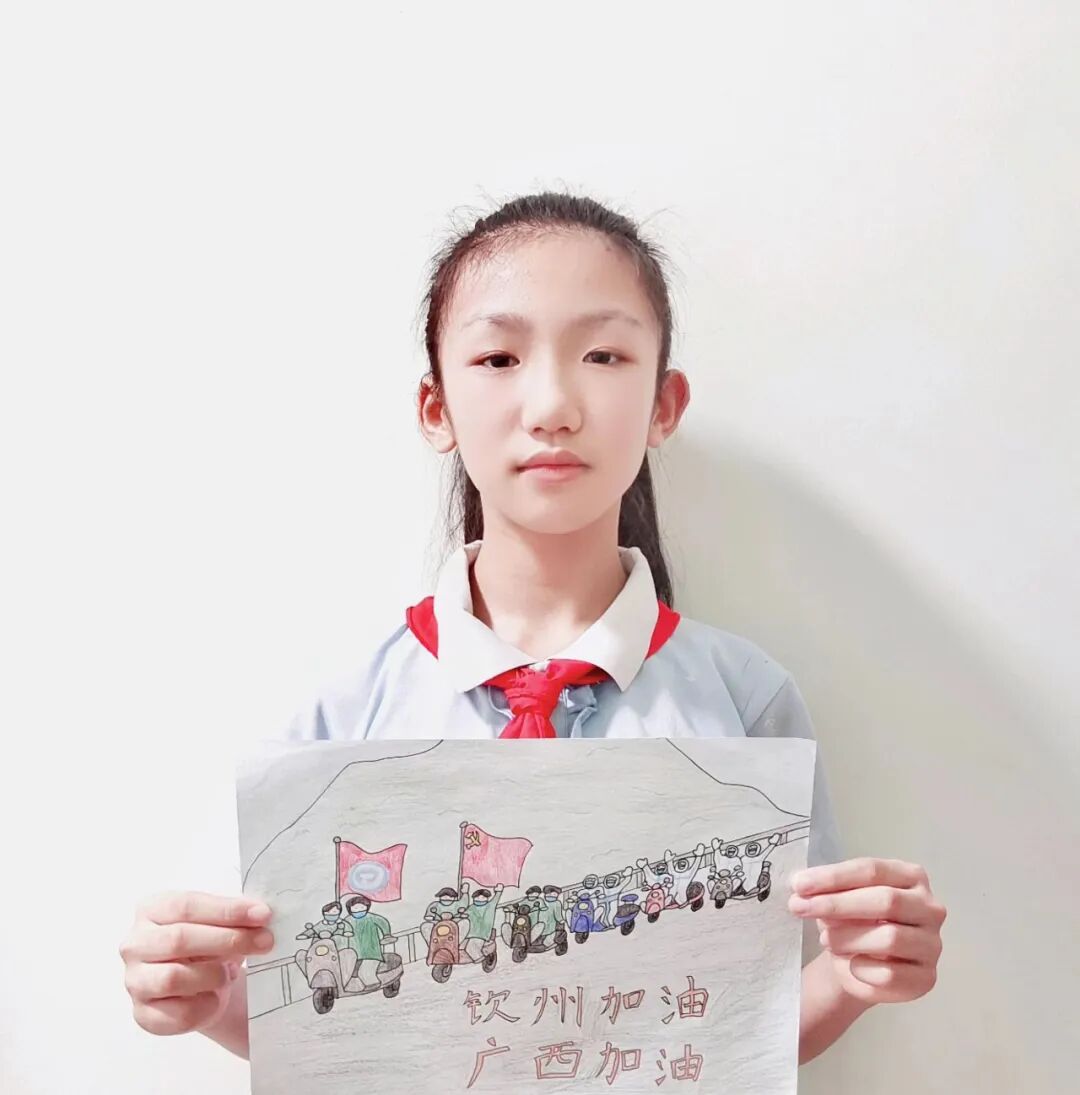 钦州加油
广西加油